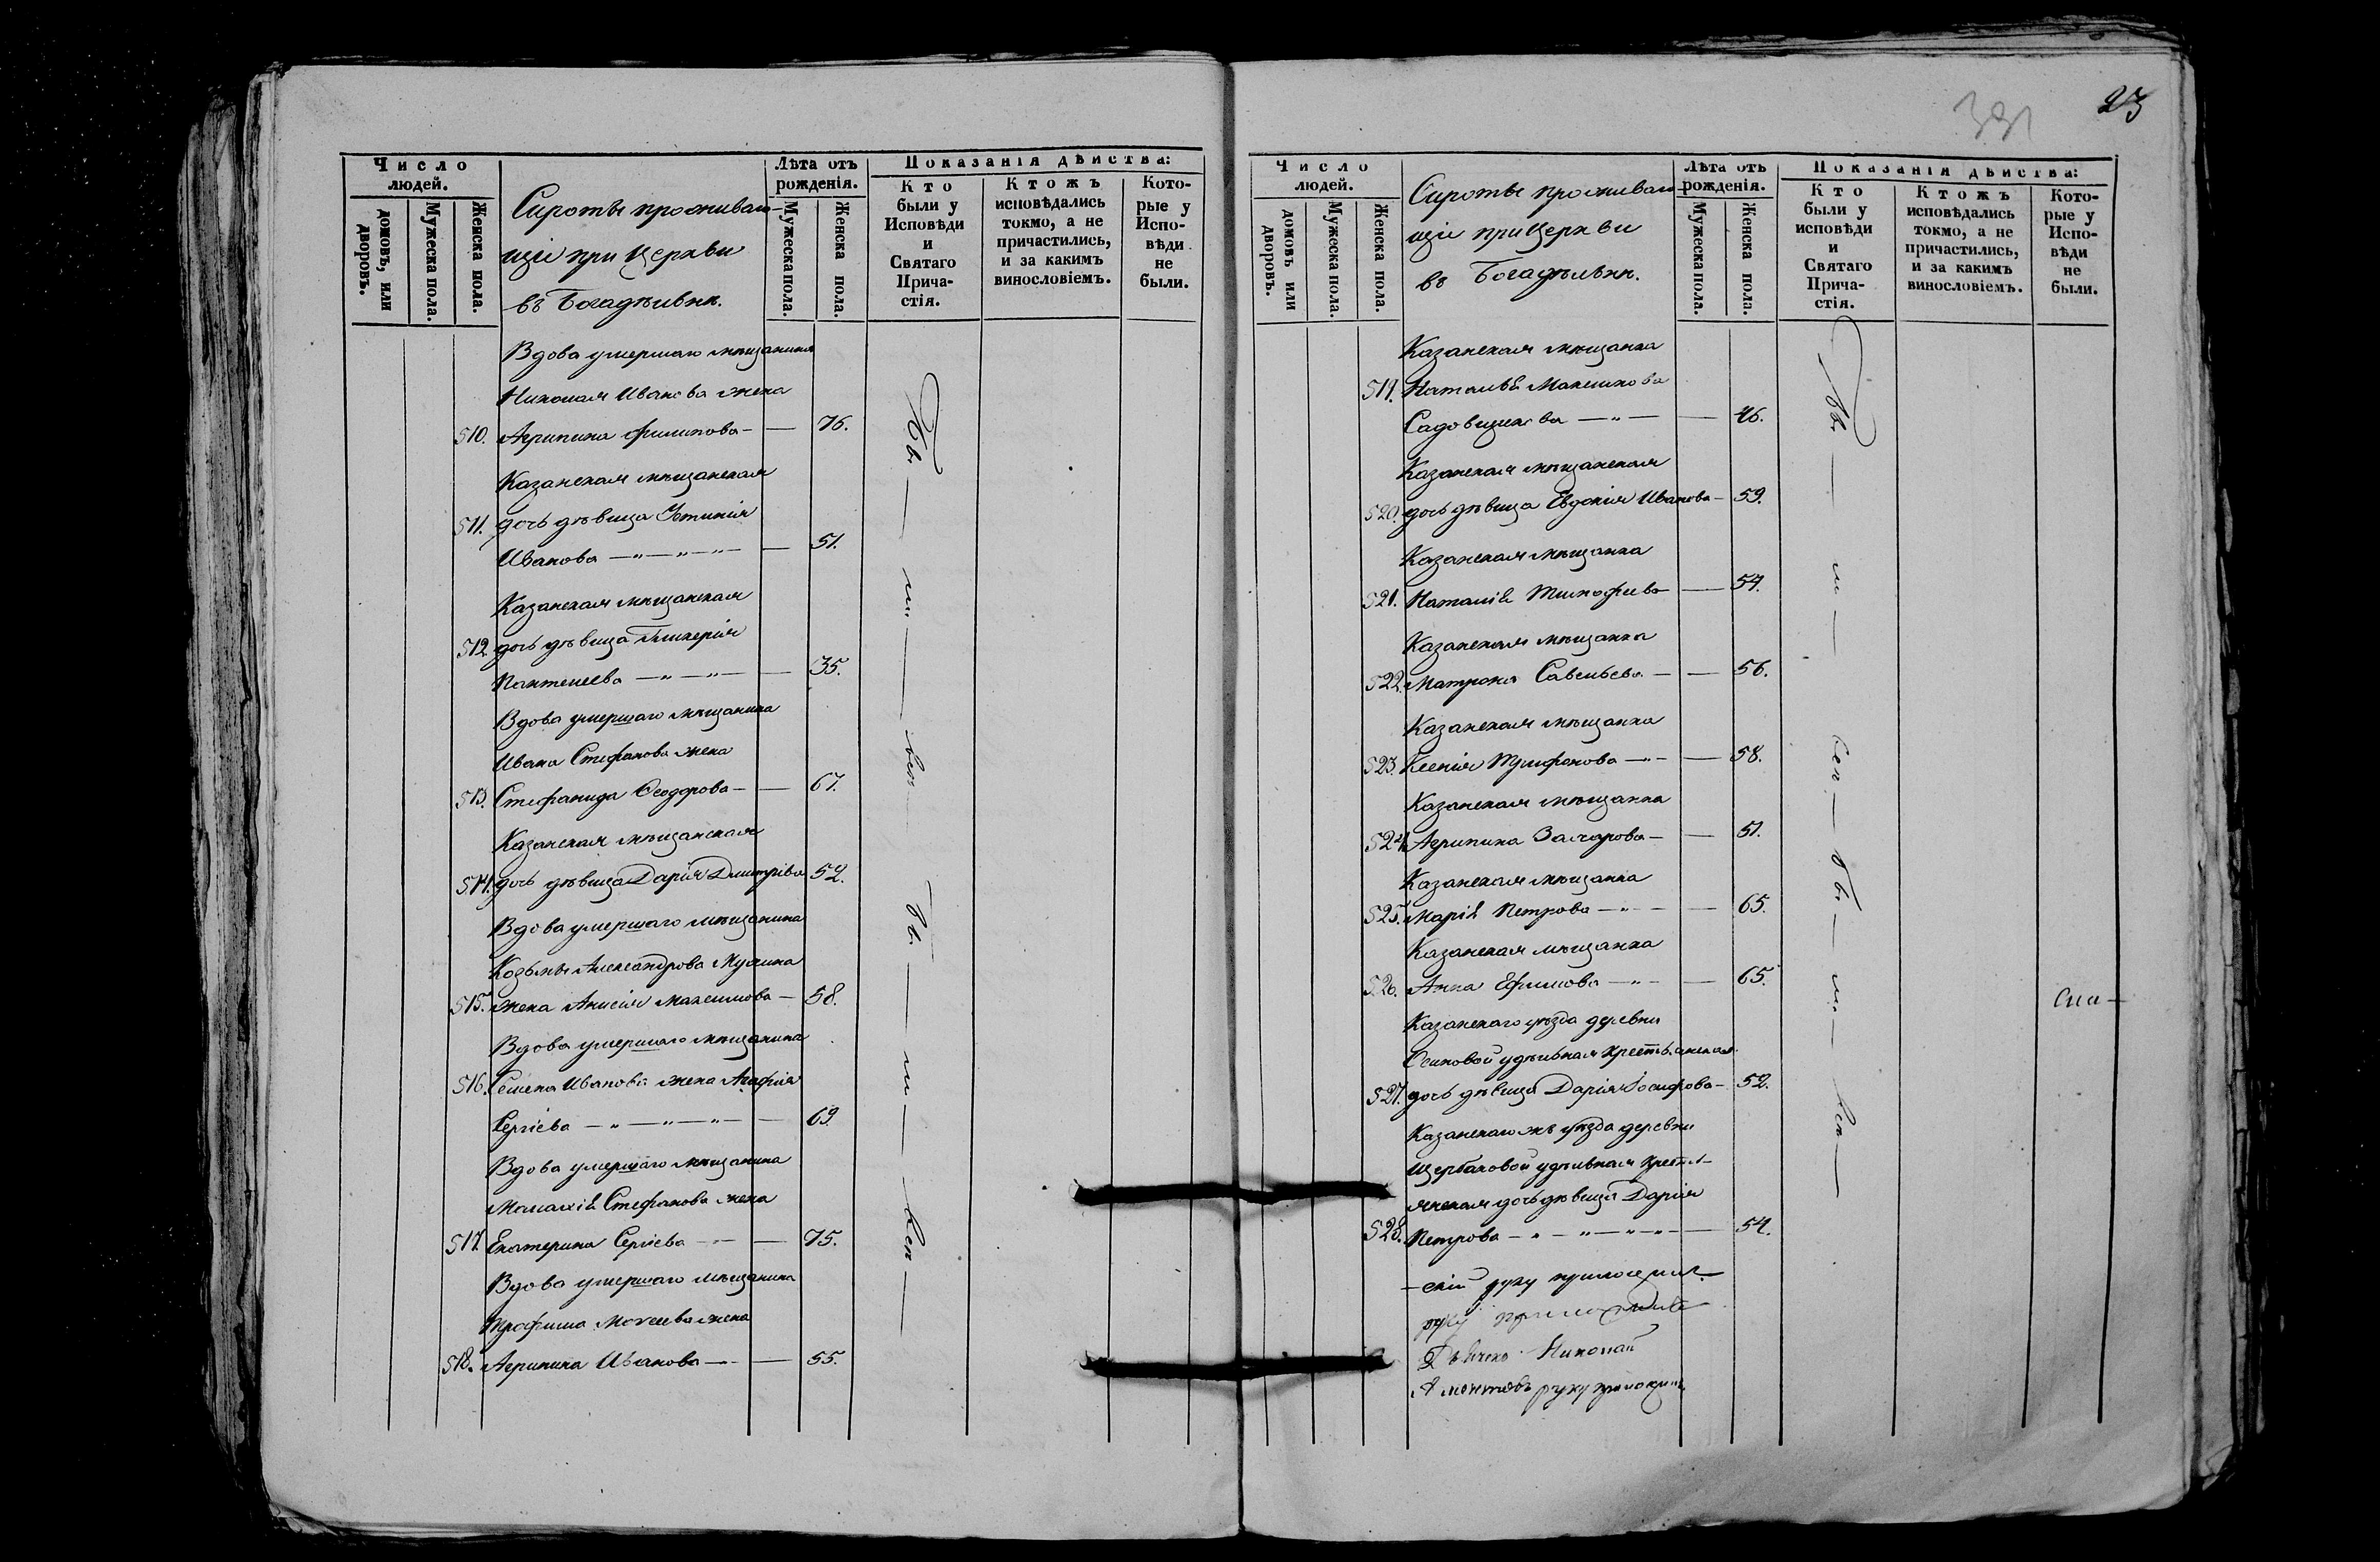 Число людей.
домовъ, или дворовъ.
Мужеска пола.
Женска пола.
Сироты проживаю-
щіе при Церкви
въ Богадѣльнѣ.
Лѣта отъ рожденія.
Мужеска пола.
Женска пола.
Показанія дѣйства:
Кто были у Исповѣди и Святаго Прича-стія.
Ктожъ исповѣдались токмо, а не причастились, и за какимъ винословіемъ.
Кото-рые у Испо-вѣди не были.
Вдова умершаго мѣщанина
Николая Иванова жена
510. Агрипина Филипова — — 76.
Казанская мѣщанская
511. дочь дѣвица Устинія
Иванова —„—„—„— — 51.
Казанская мѣщанская
512. дочь дѣвица Гликерія
Пантелеева —„—„— — 35.
Вдова умершаго мѣщанина
Ивана Стефанова жена
513. Стефанида Ѳеодорова — — 67.
Казанская мѣщанская
514. дочь дѣвица Дарія Дмитріева 52.
Вдова умершаго мѣщанина
Козьмы Александрова
515. жена Анисія Максимова — 58.
Вдова умершаго мѣщанина
516. Семена Иванова жена Агафія
Сергіева —„—„—„— — 69.
Вдова умершаго мѣщанина
Малахія Стефанова жена
517. Екатерина Сергіева —„— — 75.
Вдова умершаго мѣщанина
Трофима Моѵсеева жена
518. Агрипина Иванова —„— — 55.
23
391
Число людей.
домовъ или дворовъ.
Мужеска пола.
Женска пола.
Сироты проживаю-
щіе при Церкви
въ Богадѣльнѣ.
Лѣта отъ рожденія.
Мужеска пола.
Женска пола.
Показанія дѣйства:
Кто были у исповѣди и Святаго Прича-стія.
Ктожъ исповѣдались токмо, а не причастились, и за какимъ винословіемъ.
Кото-рые у Испо-вѣди не были.
Казанская мѣщанка
519. Наталья Максимова
Садовщикова —„— — 46.
Казанская мѣщанская
520. дочь дѣвица Евдокія Иванова — 59.
Казанская мѣщанка
521. Наталія Тимофеева — 54.
Казанская мѣщанка
522. Матрона Савельева — — 56.
Казанская мѣщанка
523. Ксенія Трифонова —„— — 58.
Казанская мѣщанка
524. Агрипина Захарова — — 51.
Казанская мѣщанка
525. Марія Петрова —„— — 65.
Казанская мѣщанка
526. Анна Ефимова —„— — 65.
Казанскаго уѣзда деревни
Осиновой удѣльная крестьянская
527. дочь дѣвица Дарія Іосифова — 52.
Казанскаго жъ уѣзда деревни
Щербаковой удѣльная крестья-
янская дочь дѣвица Дарія
528. Петрова —„—„—„—„— 54.
-скій руку приложилъ
руку приложилъ
Дьячекъ Николай
руку приложилъ